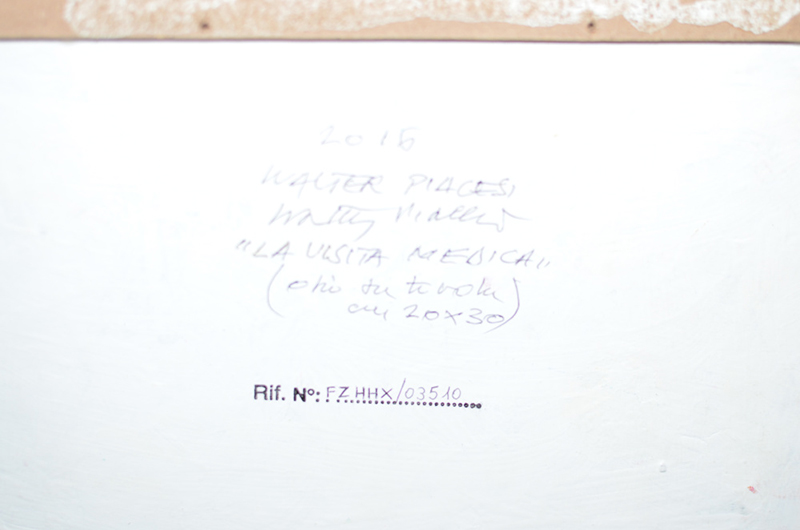 2015
WALTER PIACESI
Walter Piacesi
"LA VISITA MEDICA"
(olio su tavola
cm 20x30)
Rif. N°: FZHHX/03510